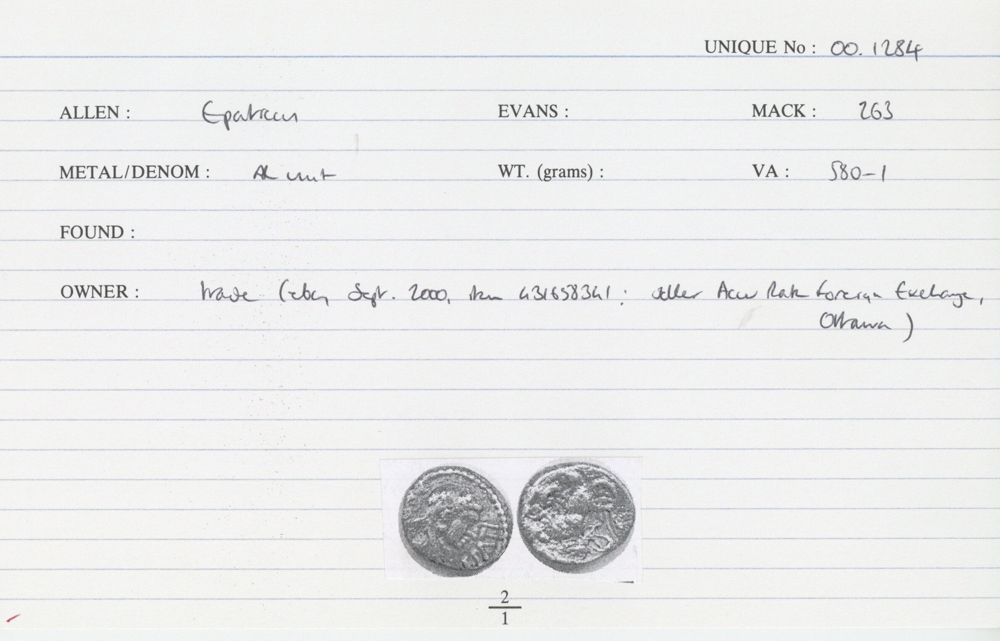 UNIQUE No : 00.1284
ALLEN : Epaticcus EVANS : MACK : 263
METAL/DENOM : AR unit WT. (grams) : VA : 580-1
FOUND :
OWNER : trade (ebay, Sept. 2000, item 431658341 ; seller Accu Rate Foreign Exchange,
Ottawa)
2
1